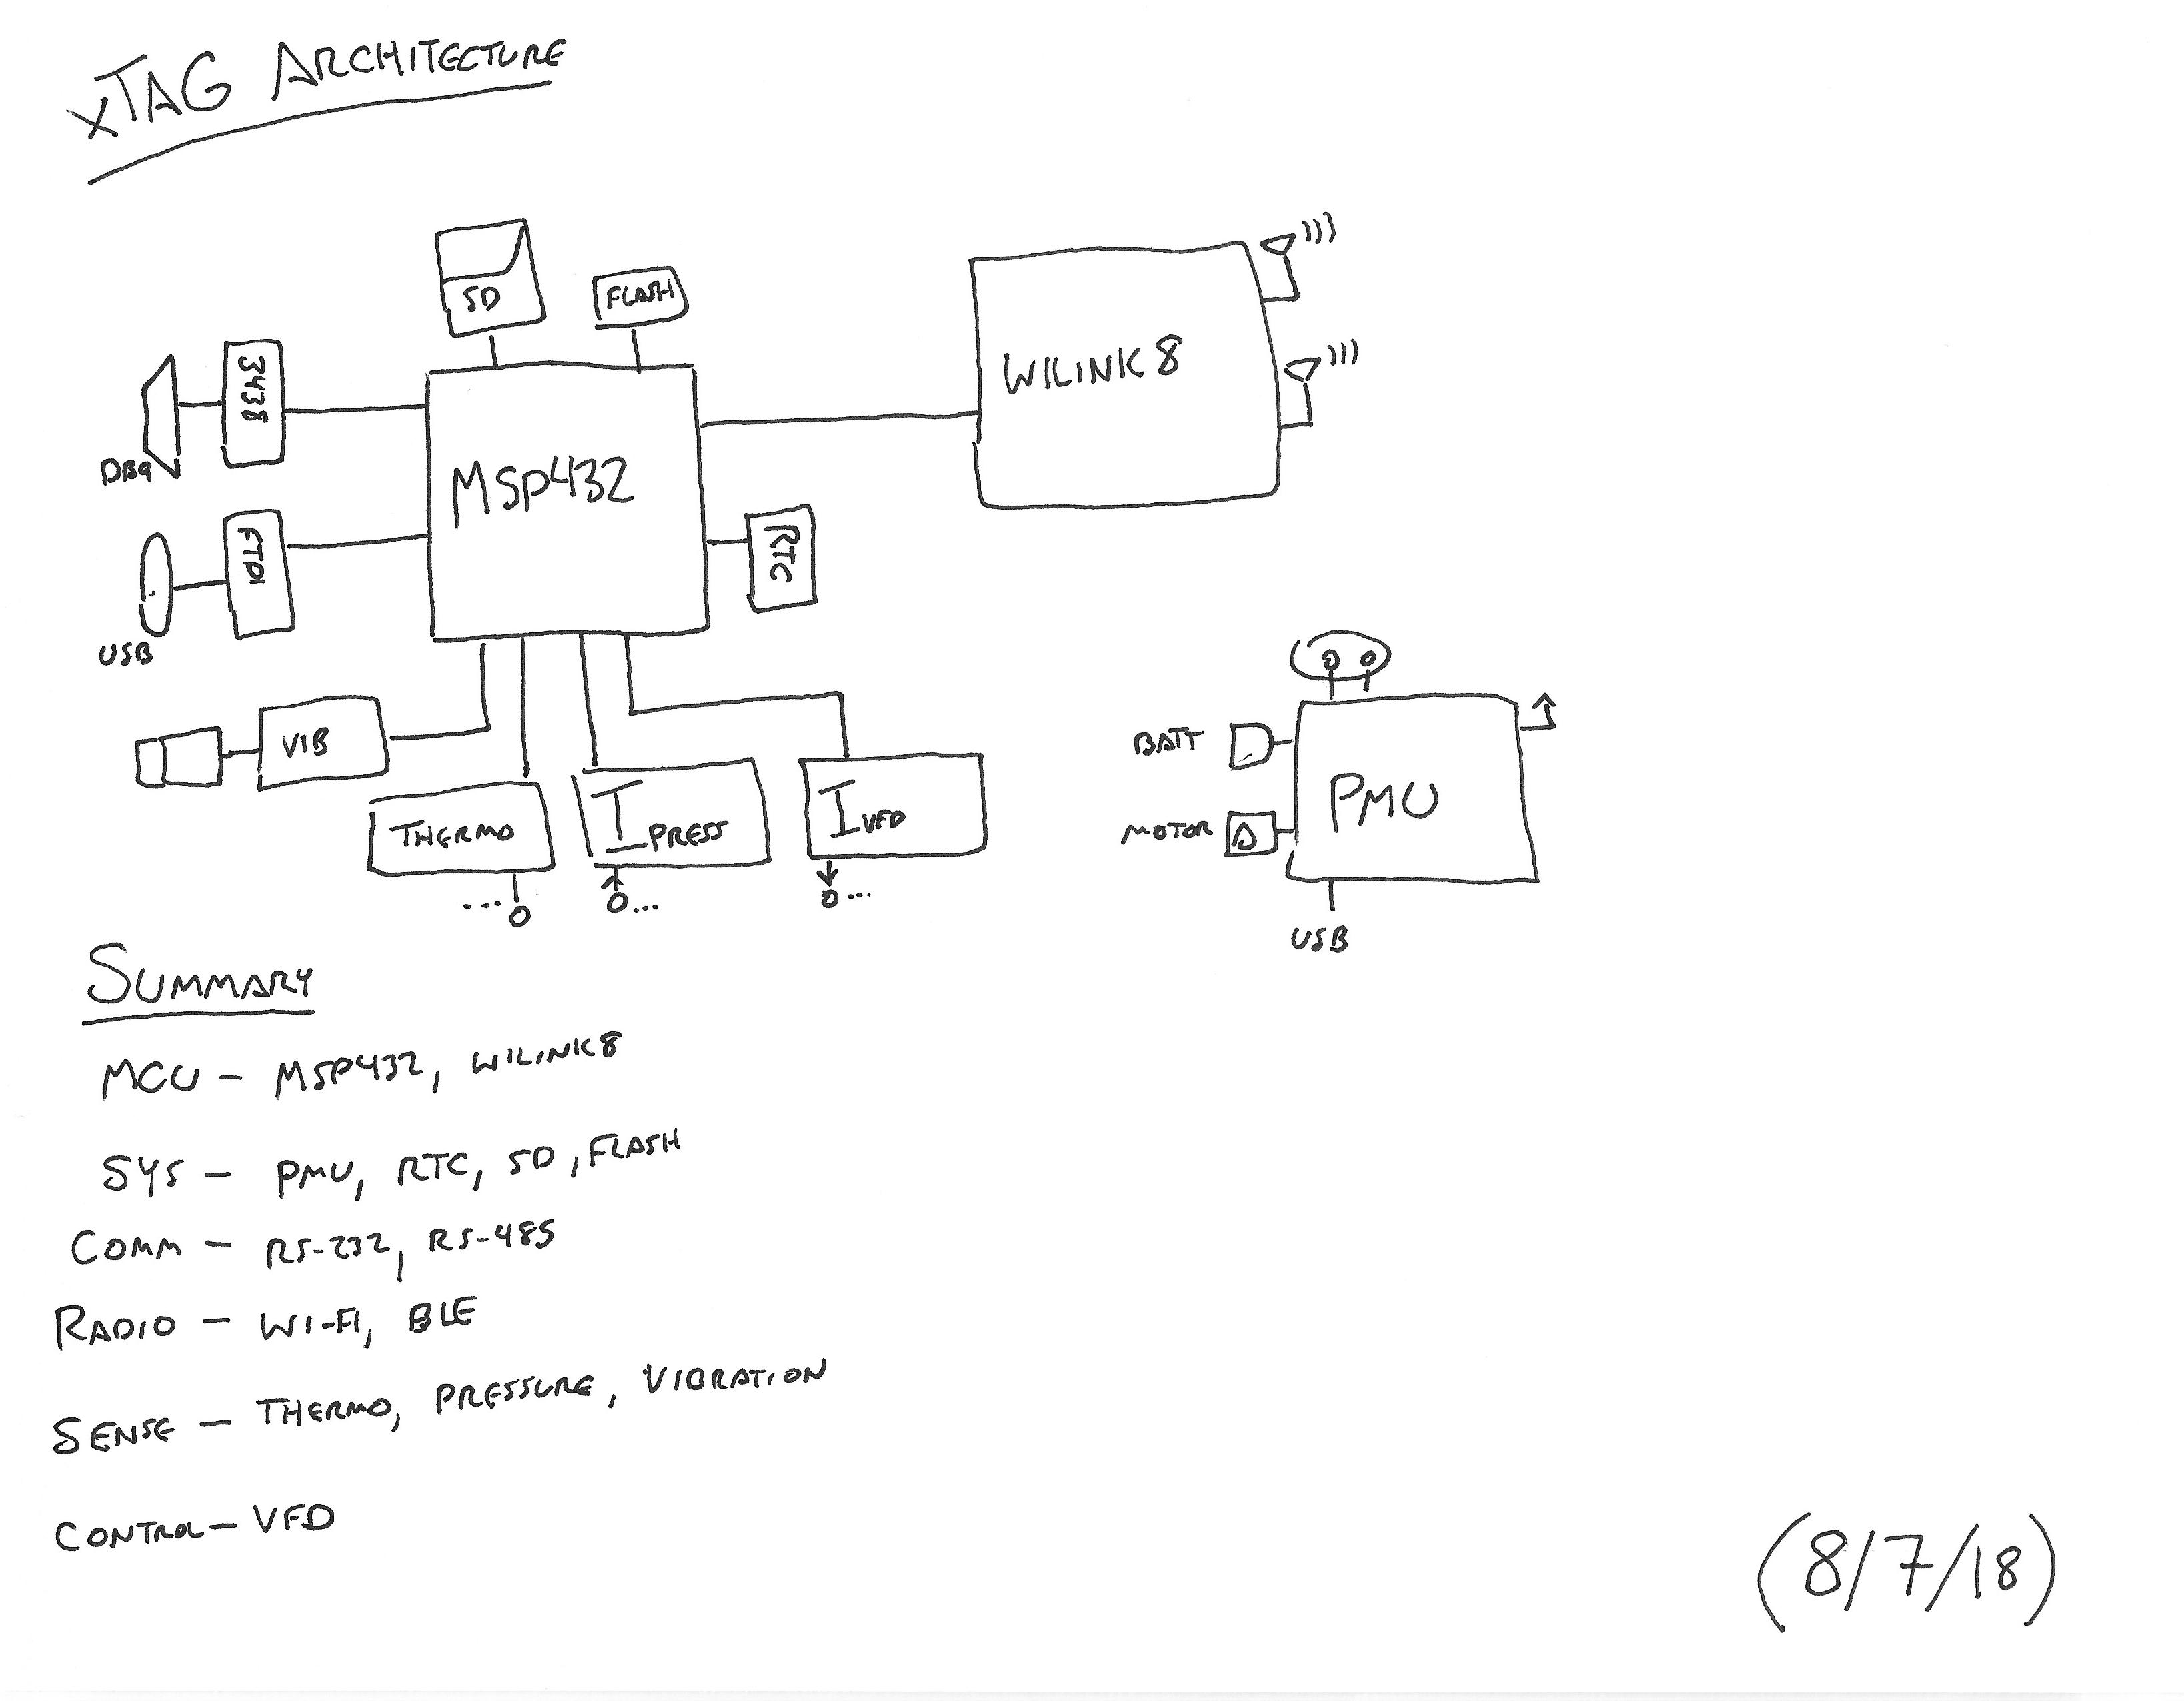 xTAG ARCHITECTURE
SD
FLASH
3438
DB9
MSP432
WILINK8
FTDI
USB
RTC
VIB
THERMO
I PRESS
I VFD
BATT
MOTOR
PMU
USB
SUMMARY
MCU - MSP432, WILINK8
SYS - PMU, RTC, SD, FLASH
COMM - RS-232, RS-485
RADIO - WI-FI, BLE
SENSE - THERMO, PRESSURE, VIBRATION
CONTROL - VFD
(8/7/18)